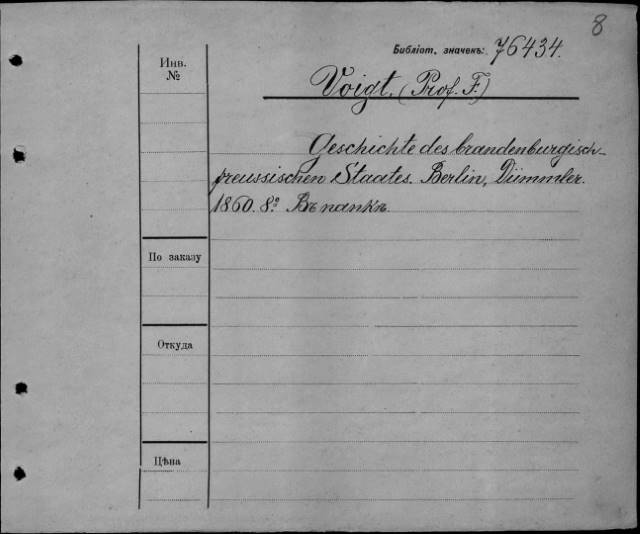 8
Библіот. значекъ: 76434.
Инв.
№
Voigt. (Prof. F.)
Geschichte des brandenburgisch-
preussischen Staates. Berlin, Dümmler.
1860. 8º. Въ папкѣ.
По заказу
Откуда
Цѣна